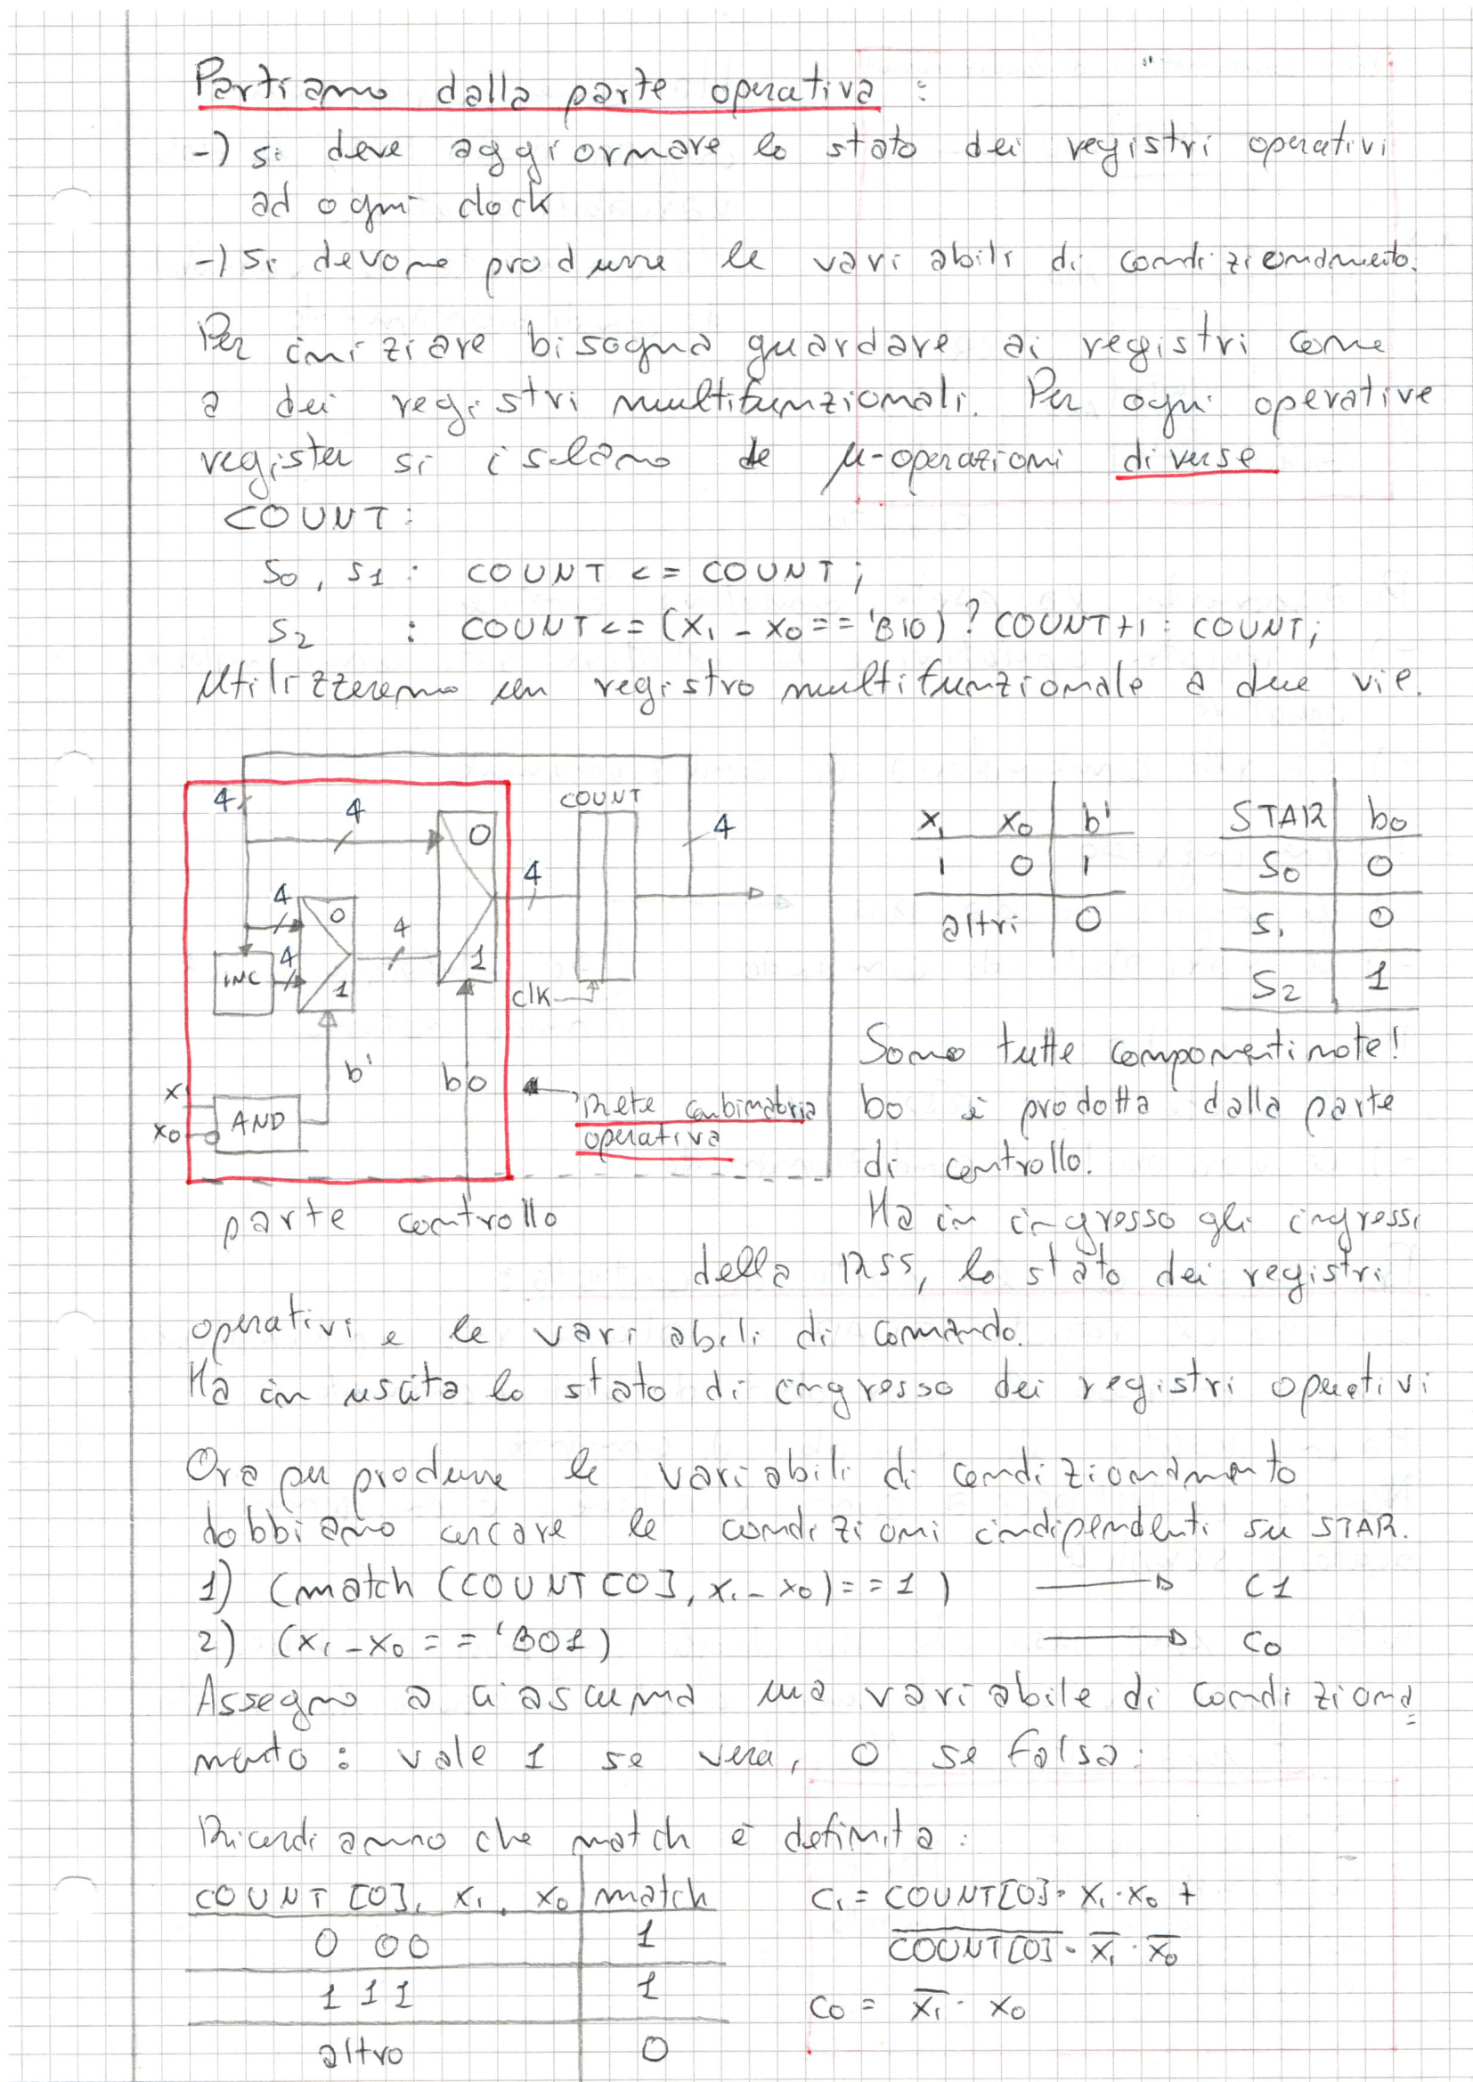 Partiamo dalla parte operativa :
-) si deve aggiornare lo stato dei registri operativi
ad ogni clock
-) Si devono produrre le variabili di condizionamento.
Per iniziare bisogna guardare ai registri come
a dei registri multifunzionali. Per ogni operative
register si isolano le μ-operazioni diverse
COUNT:
S0, S1 : COUNT <= COUNT;
S2 : COUNT <= (X1 _ X0 == 'B10) ? COUNT+1 : COUNT;
Utilizzeremo un registro multifunzionale a due vie.
4
4
0
COUNT
4
4
4
0
4
4
INC
1
1
clk
b'
b0
X
X0
AND
Rete combinatoria
operativa
parte controllo
X1 X0 b'
1 0 1
altri 0
STAR b0
S0 0
S1 0
S2 1
Sono tutte componenti note!
b0 è prodotta dalla parte
di controllo.
Ha in ingresso gli ingressi
della RSS, lo stato dei registri
operativi e le variabili di comando.
Ha in uscita lo stato di ingresso dei registri operativi
Ora per produrre le variabili di condizionamento
dobbiamo cercare le condizioni indipendenti su STAR.
1) (match (COUNT[0], X1_X0) == 1) C1
2) (X1_X0 == 'B01) C0
Assegno a ciascuna una variabile di condiziona
mento : vale 1 se vera, 0 se falsa.
Ricordiamo che match è definita :
COUNT [0], X1, X0 match
0 00 1
1 1 1 1
altro 0
C1 = COUNT[0] · X1 · X0 +
C̅O̅U̅N̅T̅[̅0̅]̅ · X̅1̅ · X̅0̅
C0 = X̅1̅ · X0